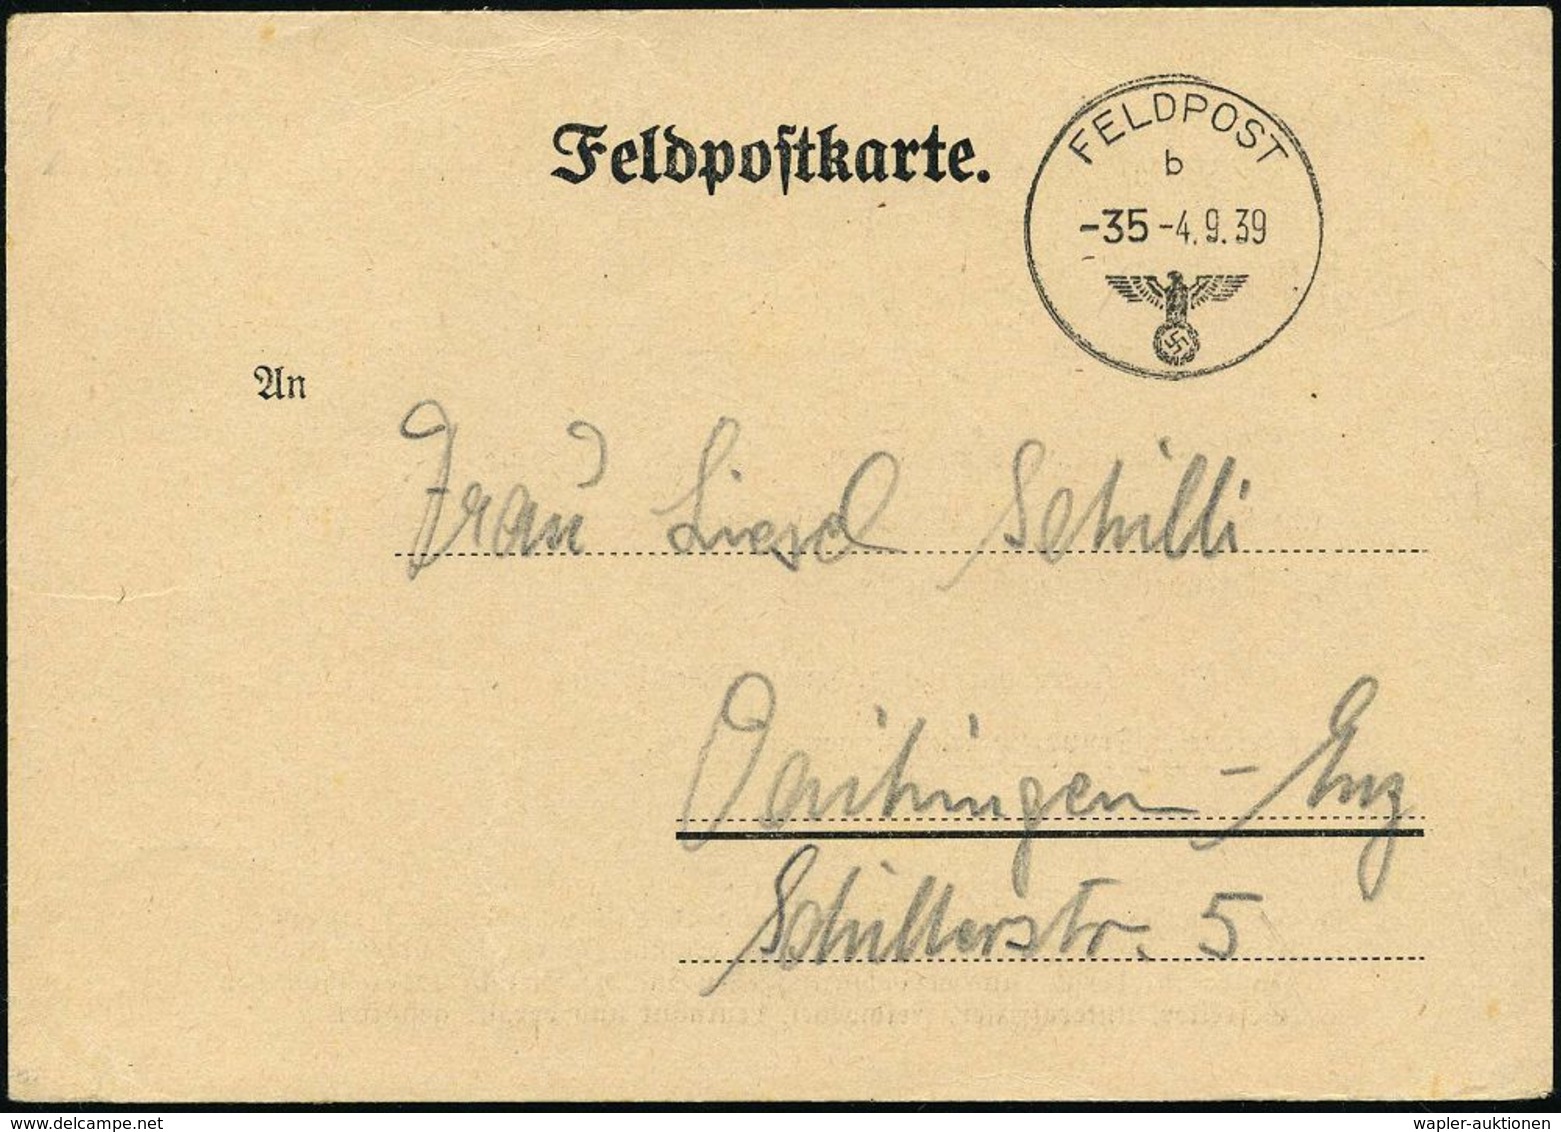 Feldpostkarte.
FELDPOST
b
-35-4.9.39
An
Frau Liesel Schilli
Vaihingen - Enz
Schillerstr. 5
wapler-auktionen